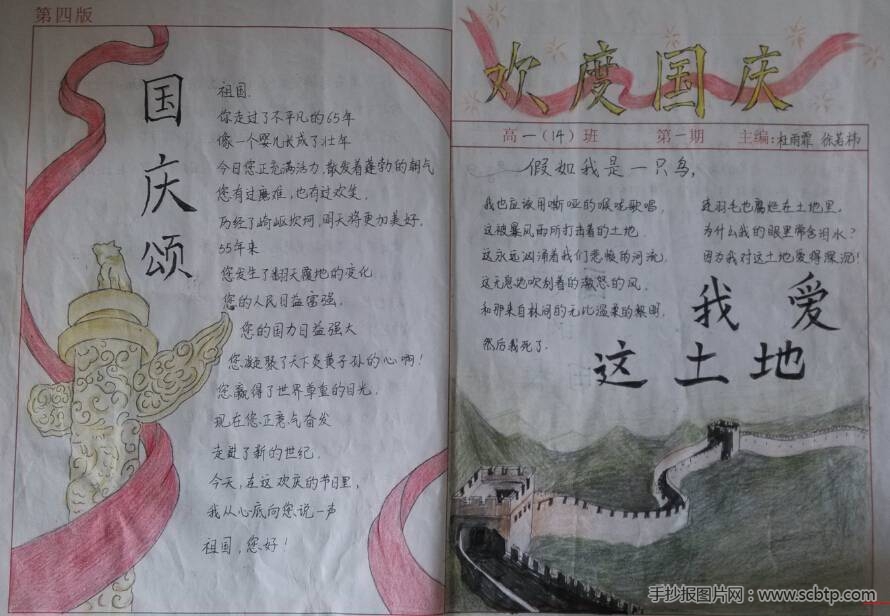 第四版
国庆颂
祖国.
你走过了不平凡的65年
像一个婴儿长成了壮年
今日您正充满活力,散发着蓬勃的朝气
您有过磨难,也有过欢笑.
历经了崎岖坎坷,明天将更加美好.
55年来
您发生了翻天覆地的变化
您的人民日益富强.
您的国力日益强大
您凝聚了天下炎黄子孙的心啊!
您赢得了世界尊重的目光.
现在您正意气奋发
走进了新的世纪.
今天,在这欢庆的节日里,
我从心底向您说一声
祖国,您好!
欢度国庆
高一(14)班 第一期 主编:杜雨霏 徐若
假如我是一只鸟,
我也应该用嘶哑的喉咙歌唱.
这被暴风雨所打击着的土地.
这永远汹涌着我们悲愤的河流.
这无息地吹刮着的激怒的风.
和那来自林间的无比温柔的黎明.
然后我死了.
连羽毛也腐烂在土地里.
为什么我的眼里常含泪水?
因为我对这土地爱得深沉!
我爱
这土地
手抄报图片网:www.scbtp.com